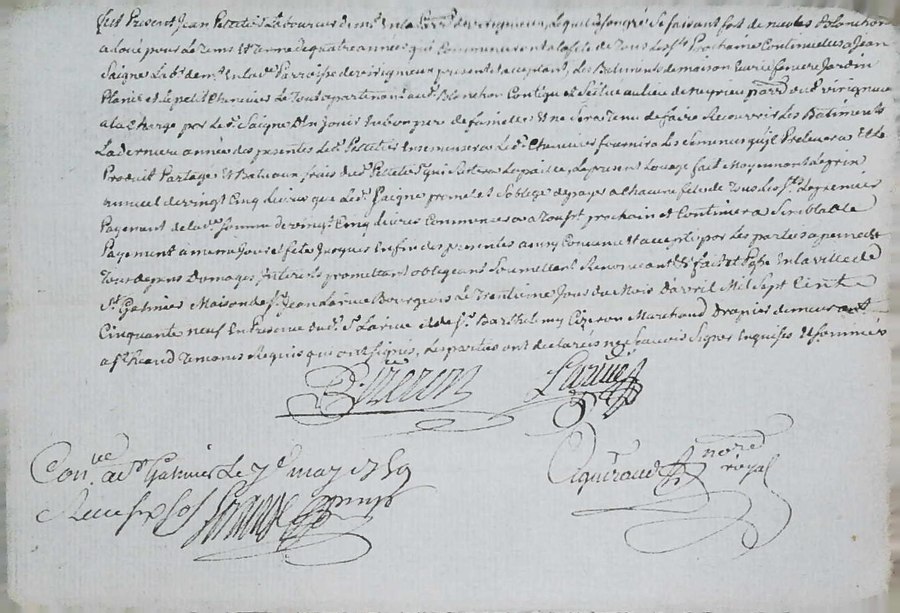 fut Present Jean Pettetier Laboureur dem^t en la Parr^e de virigneux Lequel de son gré Se faisant fort de nicolas Blanchon
a loué pour le Tems et Terme de quatre années qui Commenceront a la fête de Tous Les s^ts Prochaine Continuelles a Jean
Saigne Lab^r dem^t en lad^e Parroisse de virigneux present et acceptant, Les Batiments de maison Curie Jardin
Planie et le petit Chenevier Le Tout apartenant aud^t Blanchon Contigu et Scitué au lieu de Neyrieu parr^e dud^t virigneux
a la Charge par led^t Saigne D'en Jouir en bon pere de famille Et ne Sera Tenu de faire Recouvrir Les Batiments
La derniere année des presentes Led^t Pettetier Ensemensera Led^t Chenevier fournira Les Semences qu'il Prelevera Et Le
Produit Partagé
annuel de vingt Cinq Livres que Led^t Saigne promet et S'oblige de payer a Chacune fête de Tous Les S^ts Le premier
Payement de lad^e Somme de vingt Cinq Livres Commencera a Touss^t prochain et Continuera Semblable
Payement a meme Jour et fête Jusques En fin des presentes ainsy Convenu Et accepté par Les parties a peine de
Tous depens Domages Interets promettant obligeant Soumettant Renonceant &c fait et Passé En la ville de
S^t Galmier Maison de s^r Jean Larue Bourgeois Le Trentieme Jour du Mois D'avril Mil Sept Cent
Cinquante neuf En Presence dud^t s^r Larue et de s^r Barthelemy Cizeron Marchand Drapier demeurant
Temoins Requis qui ont signés, Les parties ont declarés ne Savoir Signer Enquises Et Sommées
B Cizeron Larue
Con^lle a S^t Galmier Le 7^e may 1759
Reçu
not^re royal